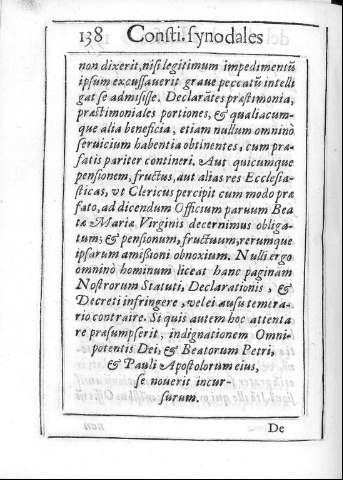 138 Consti. synodales
non dixerit, nisi legitimum impedimentū
ipsum excussauerit graue peccatū intelli
gat se admisisse. Declarātes præstimonia,
præstimoniales portiones, & qualiacum-
que alia beneficia, etiam nullum omninò
seruicium habentia obtinentes, cum præ-
fatis pariter contineri. Aut quicumque
pensionem, fructus, aut alias res Ecclesia-
sticas, vt Clericus percipit cum modo præ
fato, ad dicendum Officium paruum Bea
tæ Mariæ Virginis decernimus obliga-
tum; & pensionum, fructuum, rerumque
ipsarum amissioni obnoxium. Nulli ergo
omninò hominum liceat hanc paginam
Nostrorum Statuti, Declarationis, &
Decreti infringere, vel ei ausu temera-
rio contraire. Si quis autem hoc attenta
re præsumpserit, indignationem Omni-
potentis Dei, & Beatorum Petri,
& Pauli Apostolorum eius,
se nouerit incur-
surum.
De